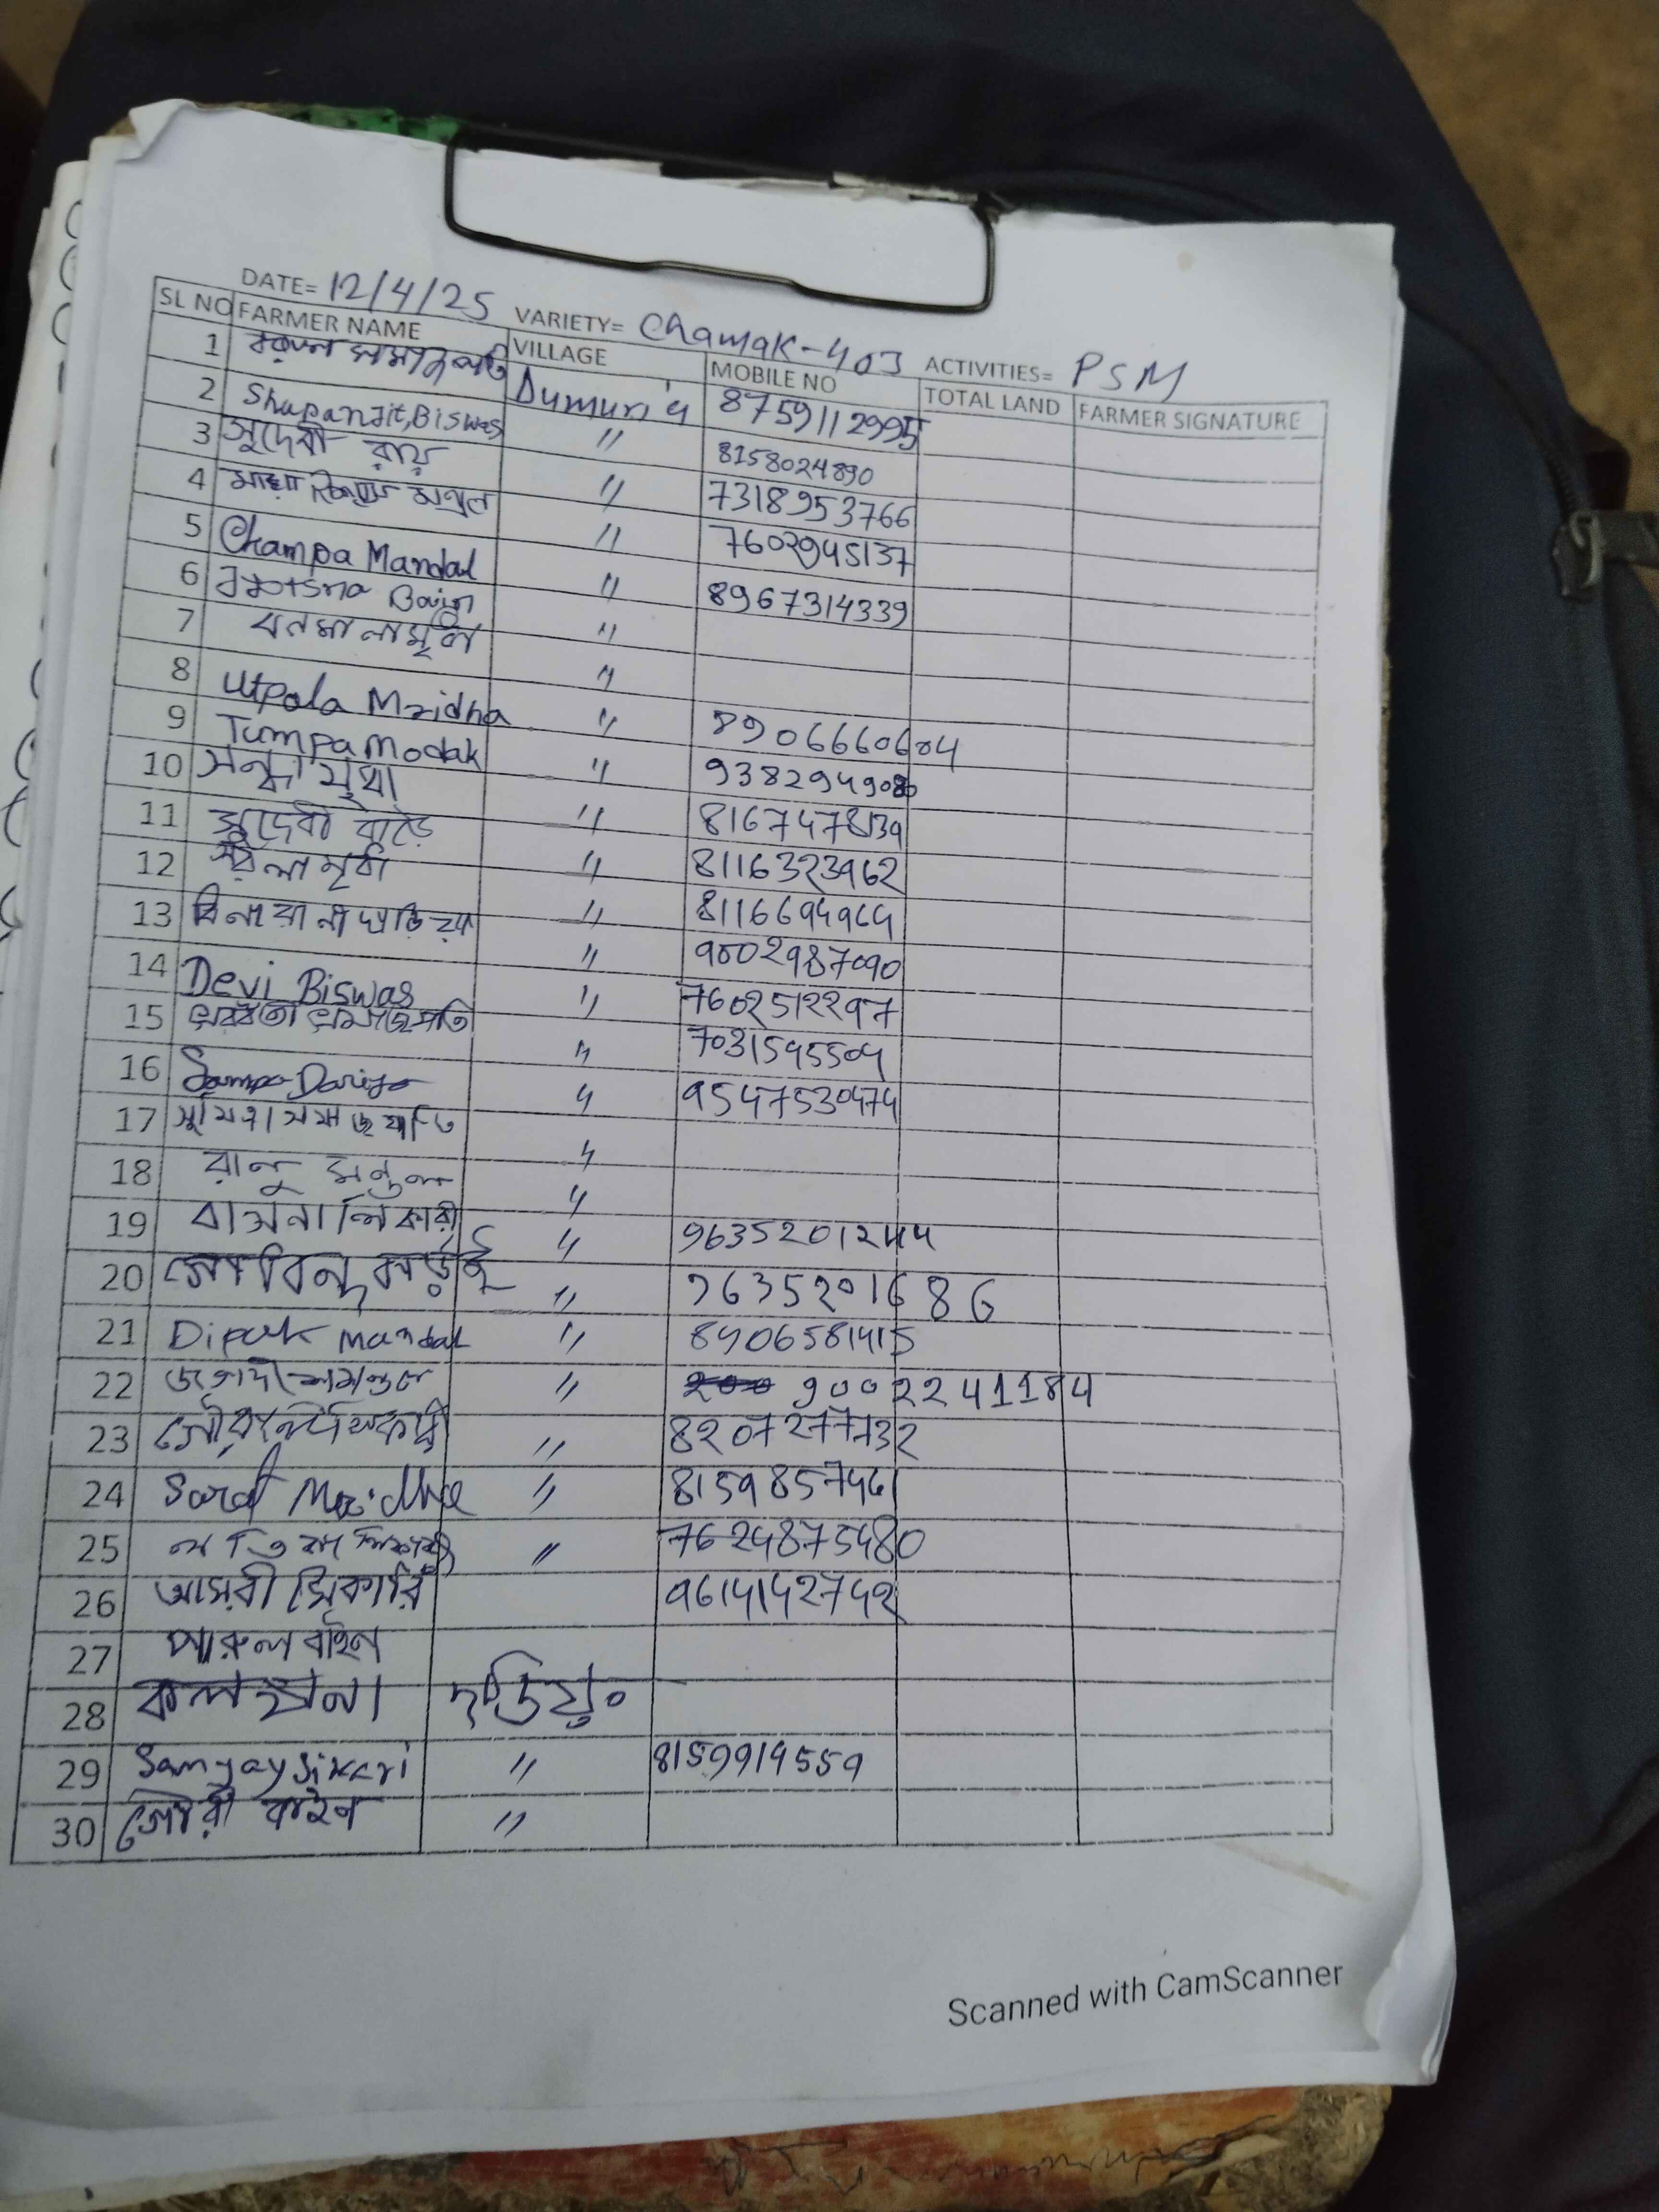 DATE= 12/4/25 VARIETY= Chamak-403 ACTIVITIES= PSM
SL NO FARMER NAME VILLAGE MOBILE NO TOTAL LAND FARMER SIGNATURE
1 Dumuria 8759112995
2 Shupanjit, Biswas " 8158024890
3 সুদেবী রায় " 7318953766
4 " 7602945137
5 Champa Mandal " 8967314339
6 Jyotsna Bain "
7 বনমালা মৃধা "
8 Utpala Mridha " 8906660604
9 Tumpa Modak "
10 সন্ধ্যা মৃধা " 8167478139
11 সুদেবী বাড়ৈ " 8116323962
12 সরলা মৃধা " 8116694964
13 " 9002987090
14 Devi Biswas " 7602512297
15 " 7031595504
16 Sampa Dariya " 9547530474
17 "
18 রানু মন্ডল "
19 বাসনা শিকারী " 9635201244
20 গোবিন্দ বাড়ই " 9635201686
21 Dipak Mandal " 8906581415
22 জগদীশ মন্ডল " 9002241184
23 " 8207277732
24 Sarat Mridha " 8159857461
25 " 7624875480
26 আসরী সিকারি 9614142742
27 পারুল বাইন
28 কলপনা
29 Sanjay Sikari " 8159919559
30 গৌরী বাইন "
Scanned with CamScanner